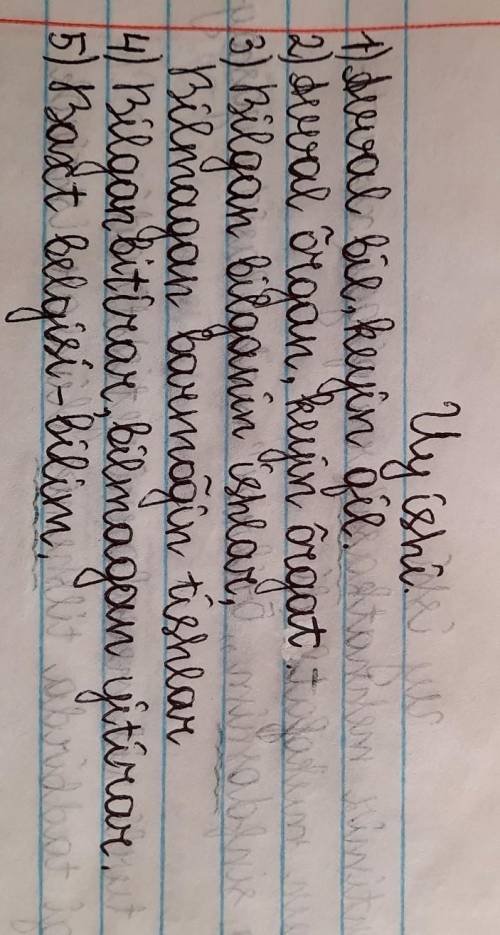 Uy ishi.
1) Avval bil, keyin qil.
2) Avval õrgan, keyin õrgat.
3) Bilgan bilganin ishlar,
Bilmagan barmoğin tishlar
4) Bilgan bitirar, bilmagan yitirar.
5) Baxt belgisi - bilim,